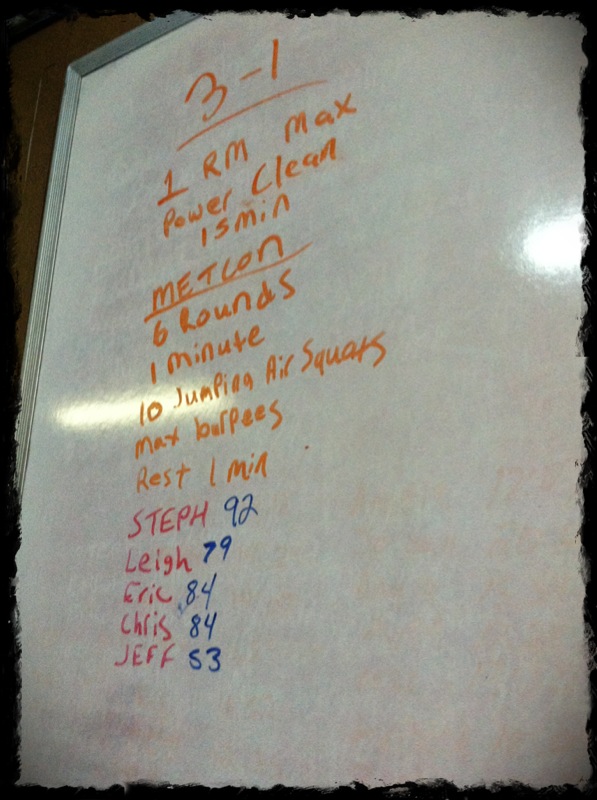 3-1
1 RM Max
Power Clean
15 min
METCON
6 Rounds
1 minute
10 Jumping Air Squats
max burpees
Rest 1 min
STEPH 92
Leigh 79
Eric 84
Chris 84
JEFF 53